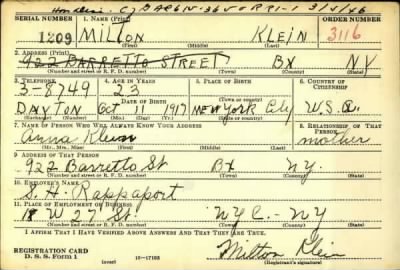 SERIAL NUMBER 1. NAME (Print) ORDER NUMBER
1209 MILTON KLEIN 3116
(First) (Middle) (Last)
2. ADDRESS (Print)
922 BARRETTO STREET BX NY
(Number and street or R. F. D. number) (Town) (County) (State)
3. TELEPHONE 4. AGE IN YEARS 5. PLACE OF BIRTH 6. COUNTRY OF CITIZENSHIP
3-8749 23
DATE OF BIRTH (Town or county)
DAYTON Oct 11 1917 NEW YORK City U.S.A.
(Exchange) (Mo.) (Day) (Yr.) (State or country)
7. NAME OF PERSON WHO WILL ALWAYS KNOW YOUR ADDRESS 8. RELATIONSHIP OF THAT PERSON
Anna Klein mother
(Mr., Mrs., Miss) (First) (Middle) (Last)
9. ADDRESS OF THAT PERSON
922 Barretto St Bx NY.
(Number and street or R. F. D. number) (Town) (County) (State)
10. EMPLOYER'S NAME
S. H. Rappaport
11. PLACE OF EMPLOYMENT OR BUSINESS
18 W 27 St NYC. NY
(Number and street or R. F. D. number) (Town) (County) (State)
I AFFIRM THAT I HAVE VERIFIED ABOVE ANSWERS AND THAT THEY ARE TRUE.
REGISTRATION CARD
D. S. S. FORM 1 (over) 16-17105 Milton Klein
(Registrant's signature)